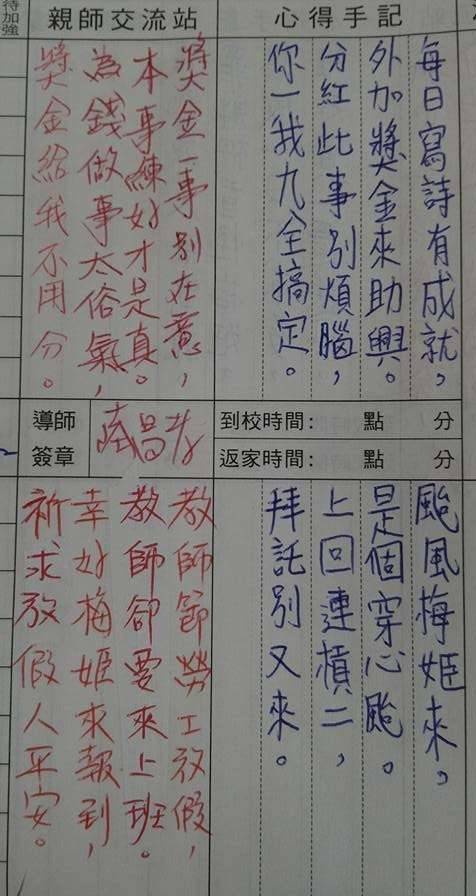 心得手記
每日寫詩有成就，
外加獎金來助興。
分紅此事別煩腦，
你一我九全搞定。
親師交流站
獎金一事別在意，
本事練好才是真。
為錢做事太俗氣，
獎金給我不用分。
待加強
到校時間： 點 分
返家時間： 點 分
導師
簽章
颱風梅姬來，
是個穿心颱。
上回連槓二，
拜託別又來。
教師節勞工放假，
教師卻要來上班。
幸好梅姬來報到，
祈求放假人平安。